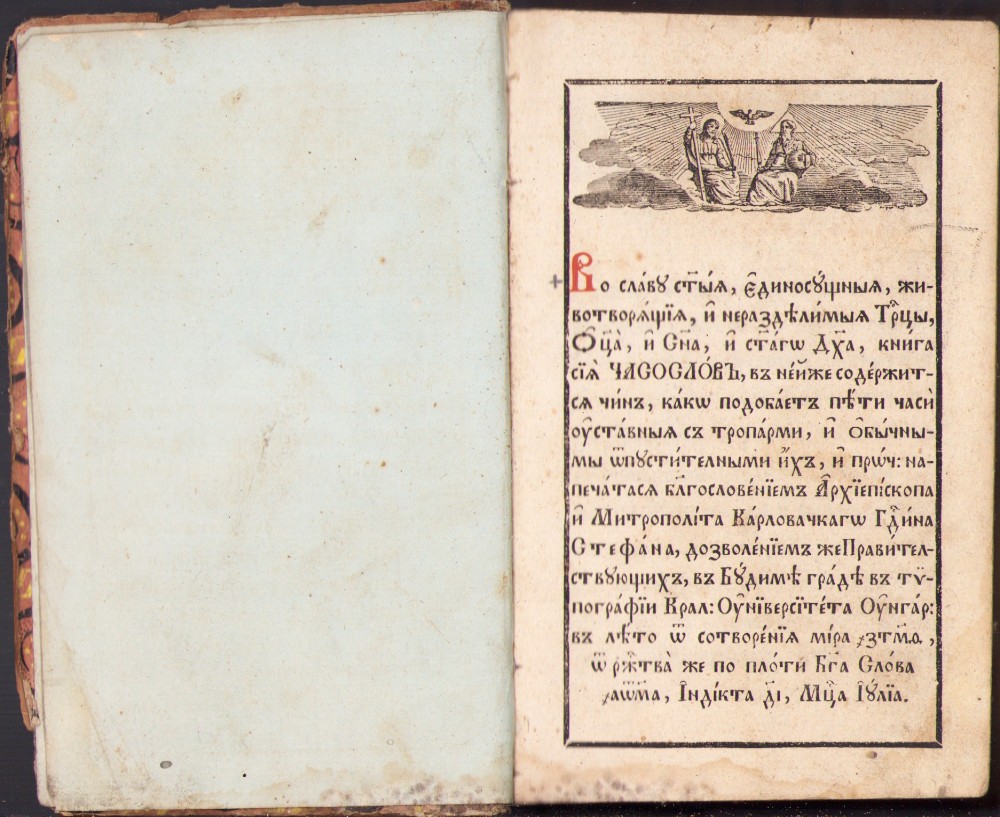 Во сла́ву ст҃ы́ѧ, є҆диносꙋ́щныѧ, жи-
вотворѧ́щїѧ, и҆ нераздѣли́мыѧ Трⷪ҇цы,
Ѻ҆ц҃а̀, и҆ Сн҃а, и҆ ст҃а́гѡ Дх҃а, кни́га
сїѧ̀ ЧАСОСЛО́ВЪ, въ не́йже соде́ржит-
сѧ чи́нъ, ка́кѡ подоба́етъ пѣ́ти часы̀
ᲂу҆ста́вныѧ съ тропарми, и҆ ѻ҆бы́чны-
мы ѿпꙋсти́телными и҆́хъ, и҆ прѡ́ч: на-
печа́тасѧ бл҃гослове́нїемъ А҆рхїепі́скопа
и҆ Митрополі́та Ка́рловачкагѡ Гдⷭ҇и́на
Стефа́на, дозволе́нїемъ же Прави́тел-
ствꙋющихъ, въ Бꙋ́димѣ гра́дѣ въ тѷ-
погра́фїи Крал: Оу҆нїверсїте́та Оу҆нга́р:
въ лѣ́то ѿ сотворе́нїѧ мі́ра ҂зтм҃ѳ,
ѿ ржⷭ҇тва̀ же по пло́ти Бг҃а Сло́ва
҂аѡм҃а, І҆нді́кта д҃і, Мцⷭ҇а І҆ꙋ́лїа.